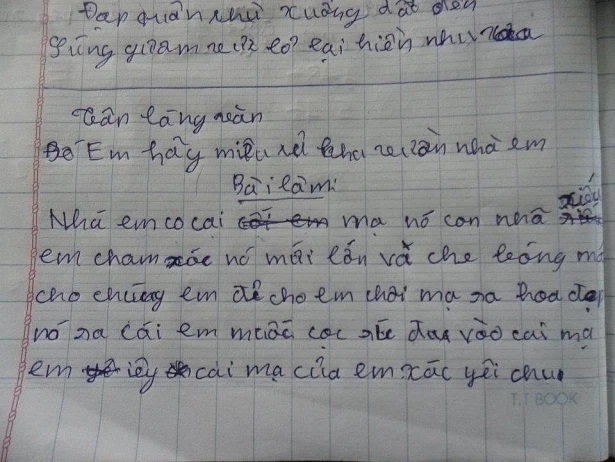 Đạp quân thù xuống đất đen
Súng gươm vứt bỏ lại hiền như xưa
Tuần làng văn
Em hãy miêu tả khu vườn nhà em
Bài làm:
Nhà em co cai mạ nó con nhã
em cham xóc nó mới lớn và che bóng má
cho chúng em để cho em chơi mạ ra hoa đẹp
nó ra cái em muốc cọc vào cai mạ
em iêy cái mạ của em xác yêi chu
T.T BOOK